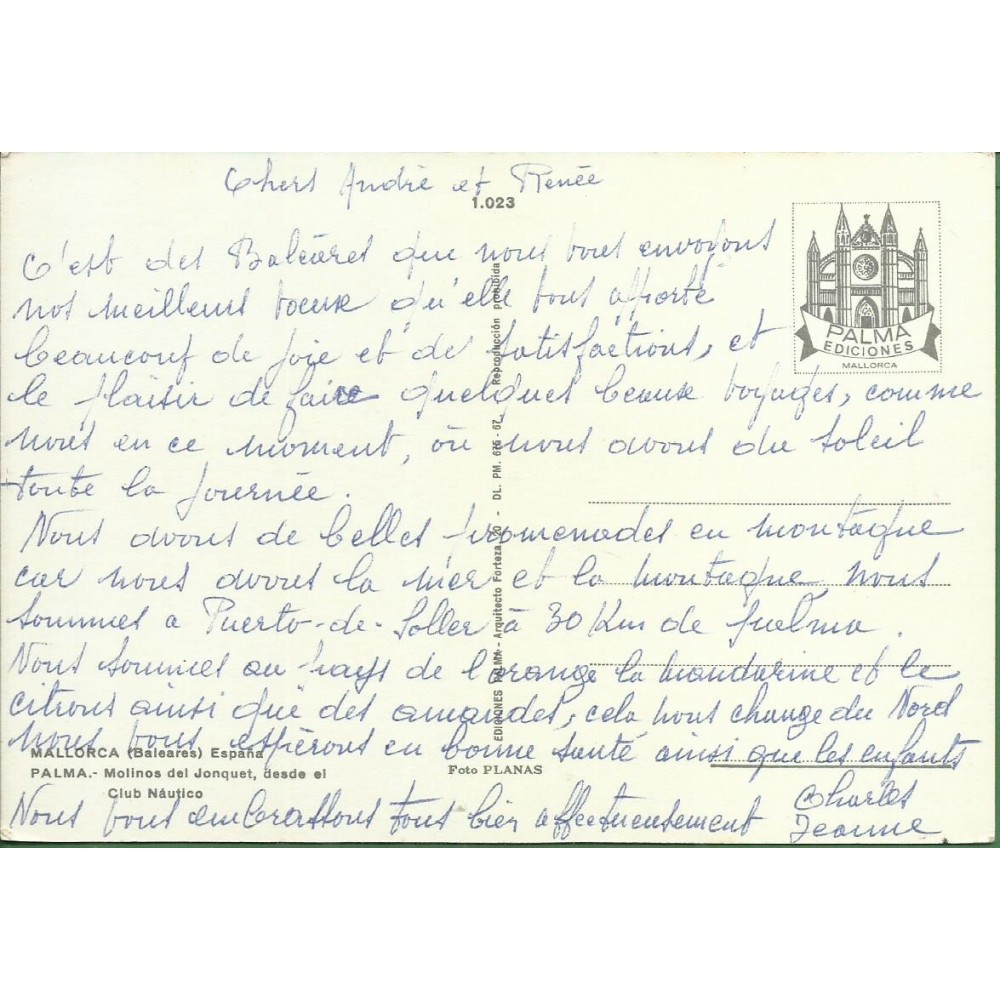 Chers André et Renée
1.023
C'est des Baléares que nous vous envoyons
nos meilleurs voeux qu'elle vous apporte
beaucoup de joie et de satisfactions, et
le plaisir de faire quelques beaux voyages, comme
nous en ce moment, où nous avons du soleil
toute la journée.
Nous avons de belles promenades en montagne
car nous avons la mer et la montagne nous
sommes a Puerto-de-Soller à 30 Km de Palma.
Nous sommes au pays de l'orange la mandarine et le
citrons ainsi que des amandes, cela nous change du Nord
Nous vous espérons en bonne santé ainsi que les enfants
Nous vous embrassons tous bien affectueusement
Charles
Jeanne
PALMA
EDICIONES
MALLORCA
EDICIONES PALMA - Arquitecto Forteza, 20 - DL. PM. 676 - 67 - Reproducción prohibida
MALLORCA (Baleares) España
PALMA.- Molinos del Jonquet, desde el
Club Náutico
Foto PLANAS